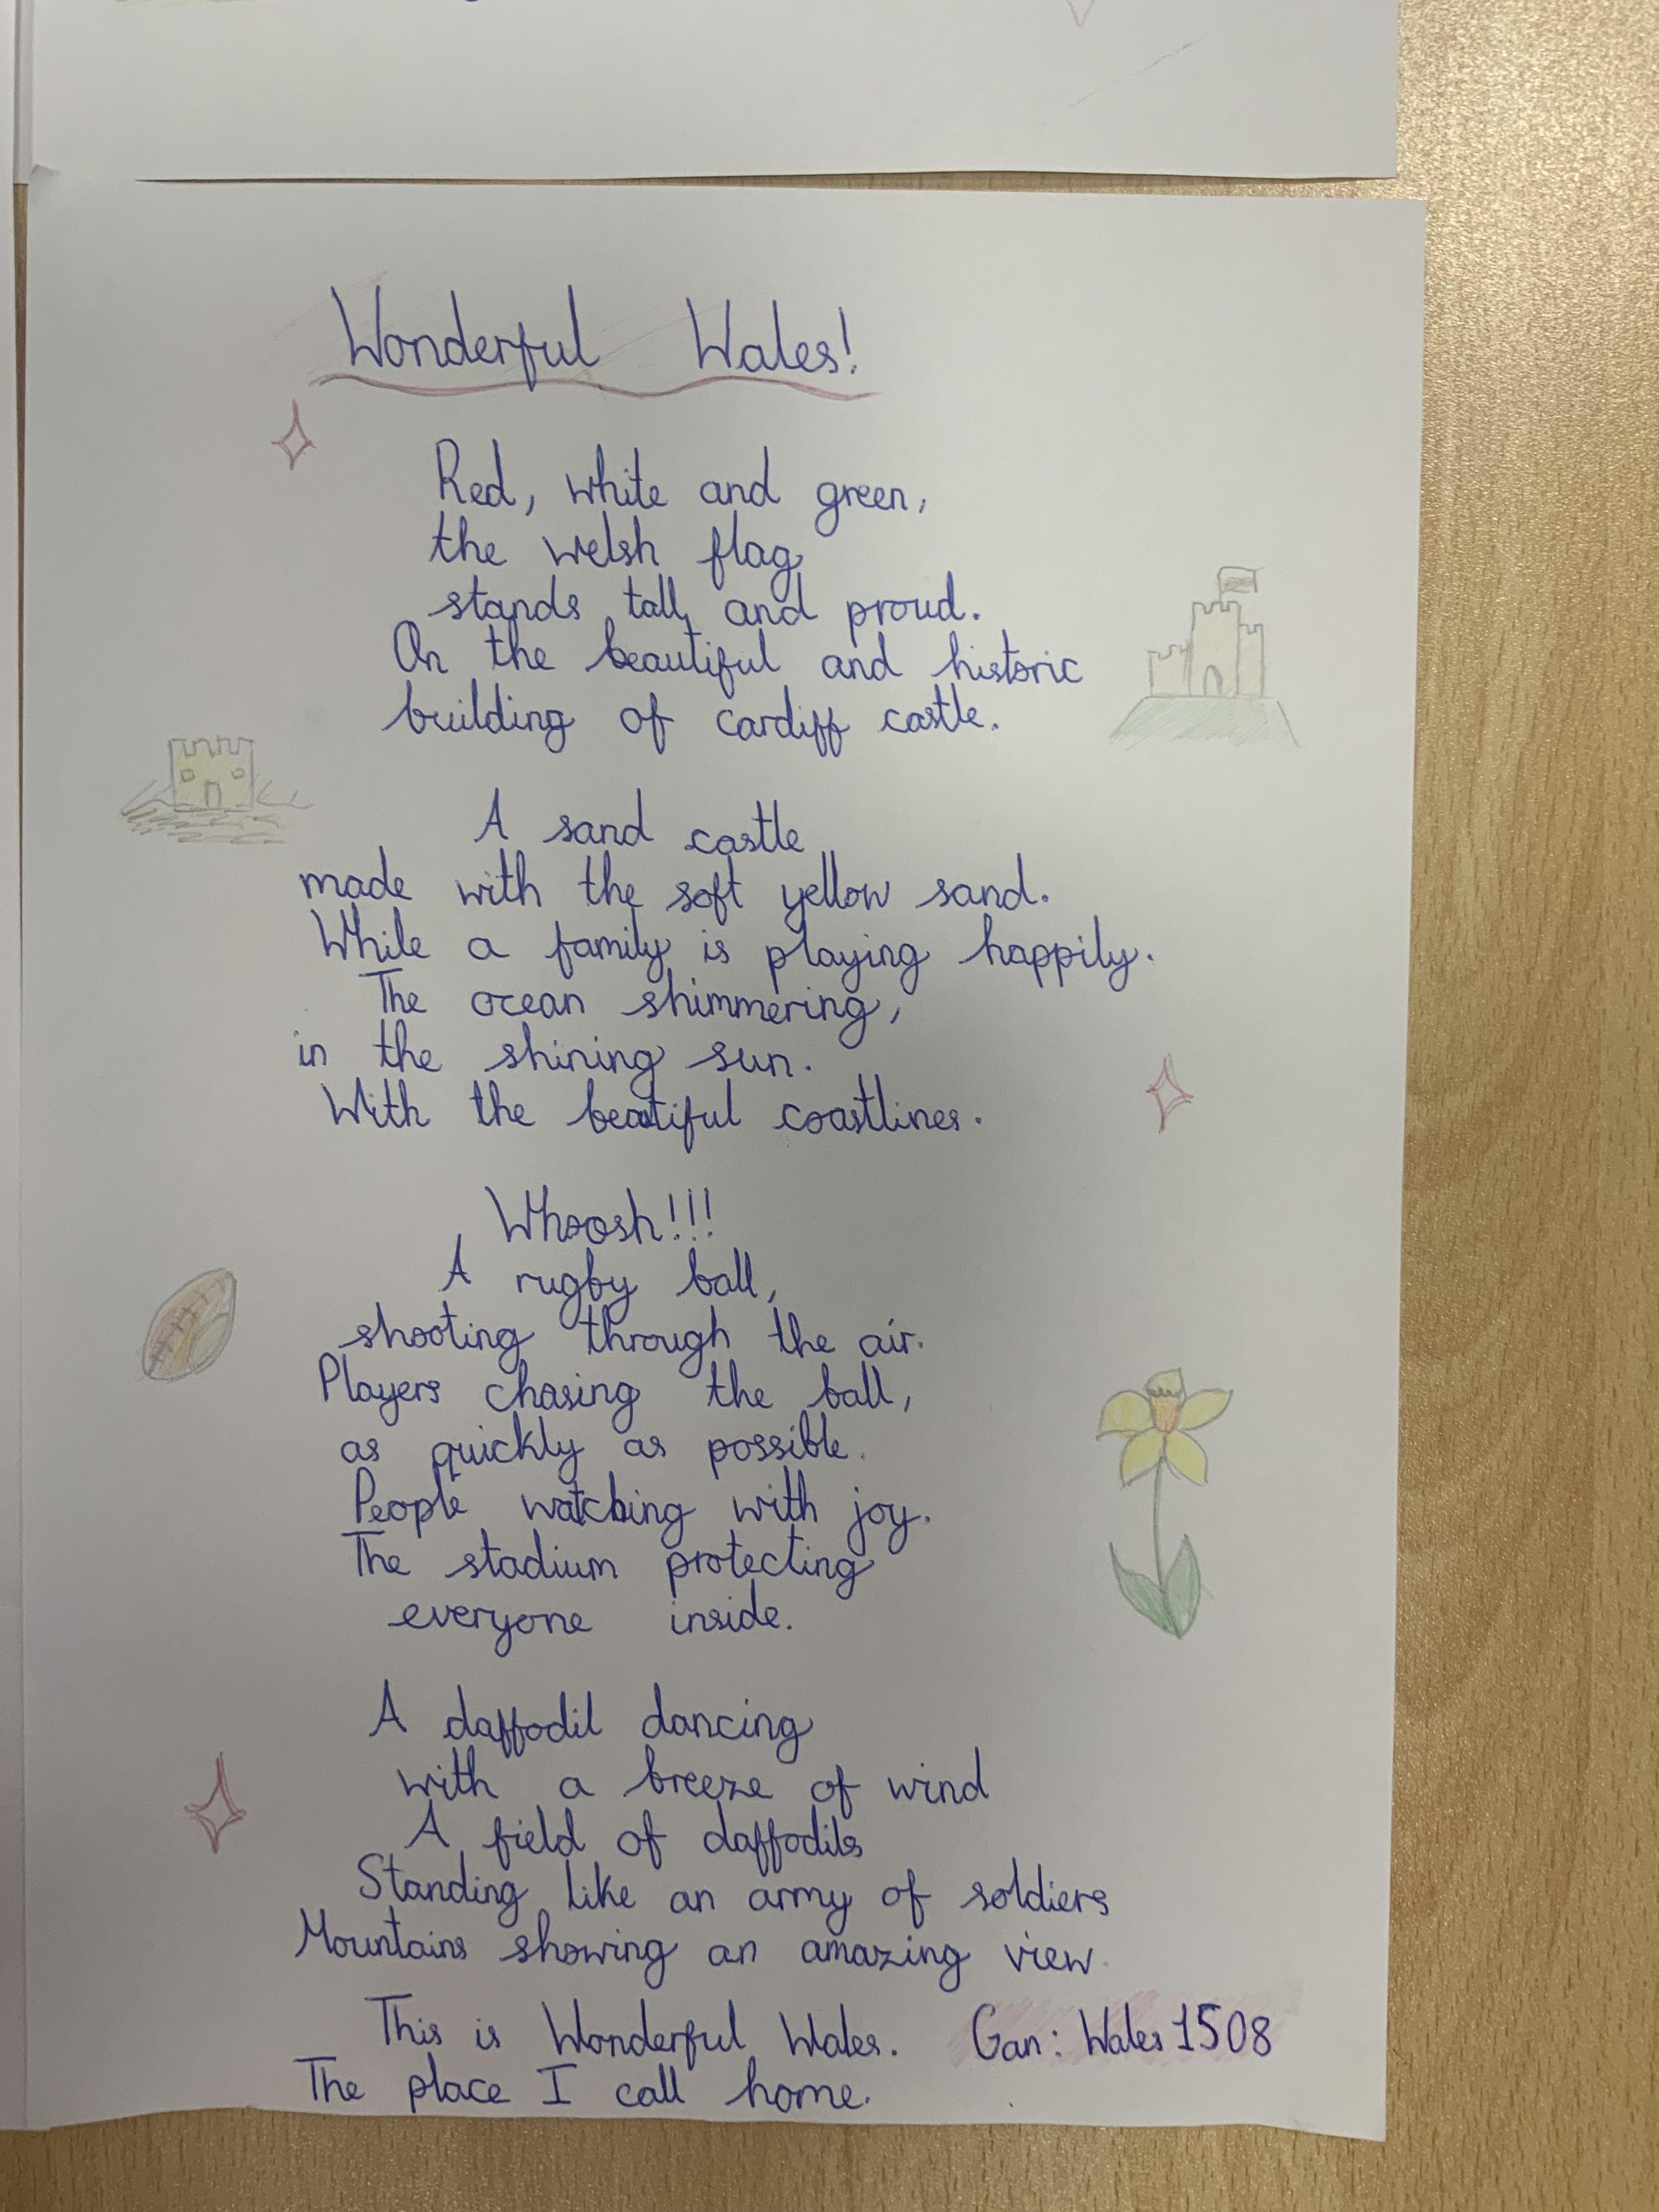 Wonderful Wales!
Red, white and green,
the welsh flag
stands tall and proud.
On the beautiful and historic
building of cardiff castle.
A sand castle
made with the soft yellow sand.
While a family is playing happily.
The ocean shimmering,
in the shining sun.
With the beatiful coastlines.
Whoosh!!!
A rugby ball,
shooting through the air.
Players chasing the ball,
as quickly as possible.
People watching with joy.
The stadium protecting
everyone inside.
A daffodil dancing
with a breeze of wind
A field of daffodils
Standing like an army of soldiers
Mountains showing an amazing view.
This is Wonderful Wales. Gan: Wales 1508
The place I call home.